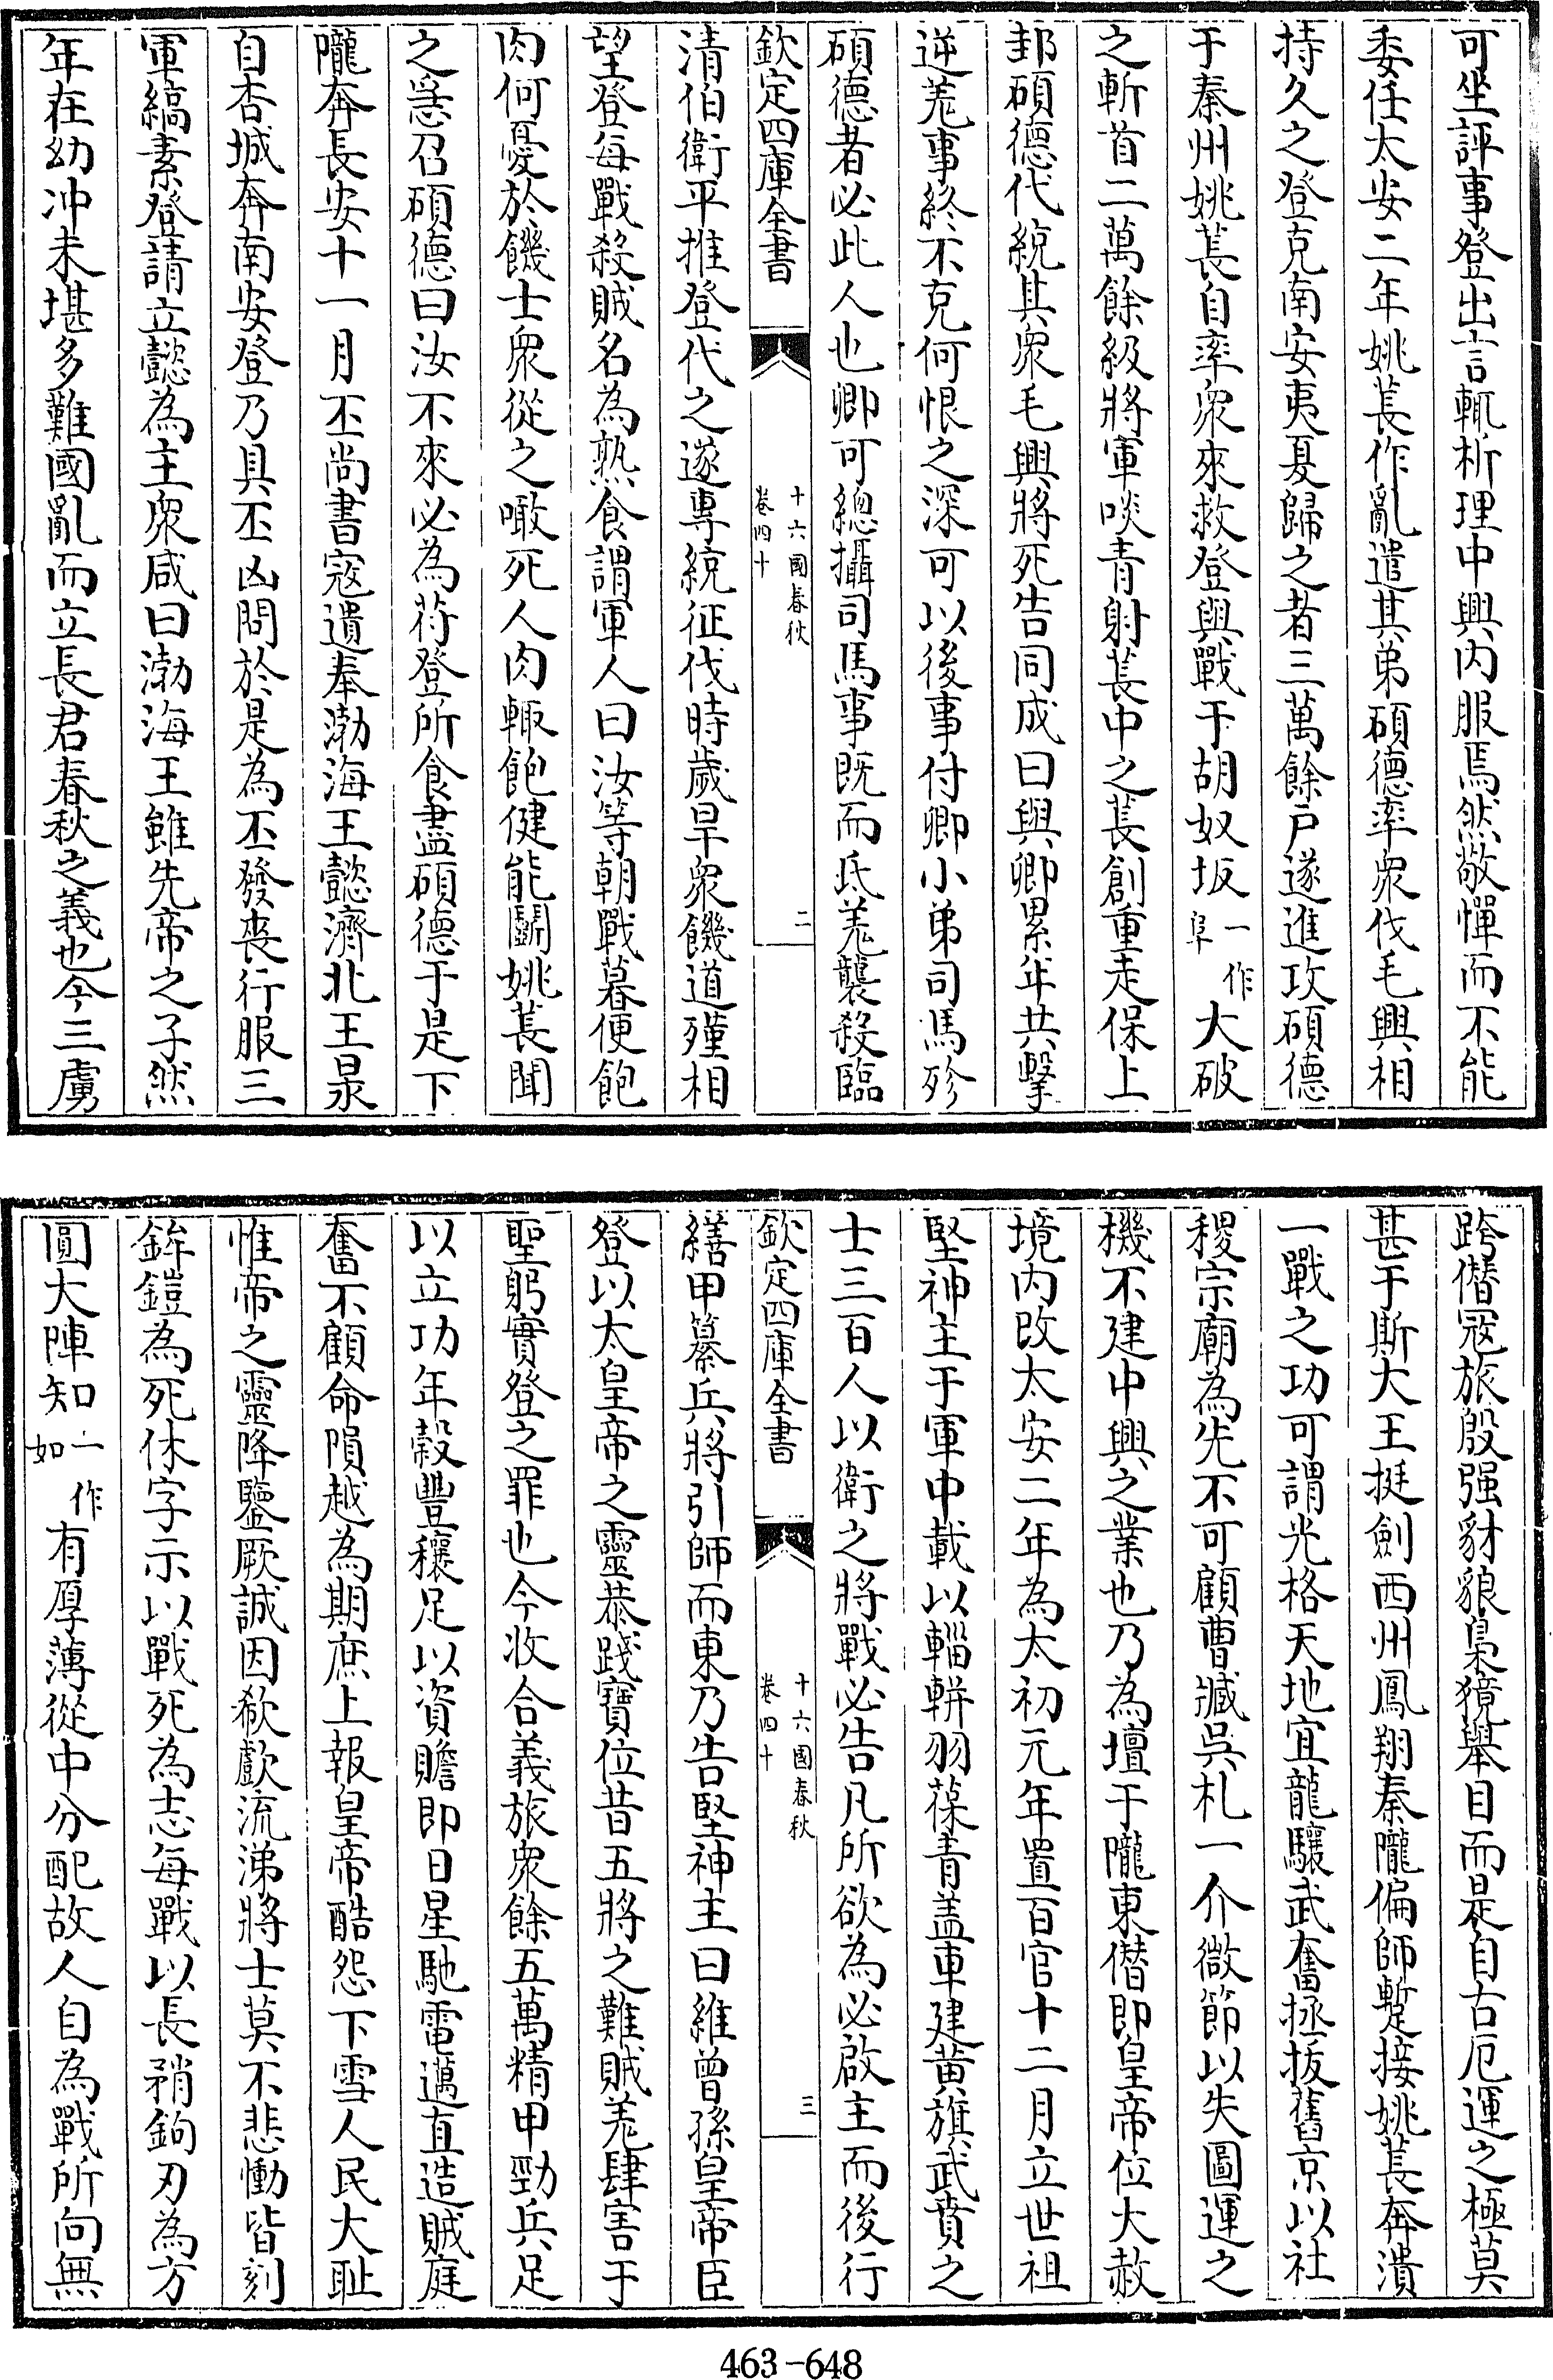 可坐評事登出言輒析理中興内服焉然敬憚而不能
委任太安二年姚萇作亂遣其弟碩德率衆伐毛興相
持久之登克南安夷夏歸之者三萬餘戸遂進攻碩德
于秦州姚萇自率衆來救登與戰于胡奴坂一作阜大破
之斬首二萬餘級將軍啖青射萇中之萇創重走保上
邽碩德代統其衆毛興將死告同成曰與卿累年共擊
逆羌事終不克何恨之深可以後事付卿小弟司馬殄
碩德者必此人也卿可總攝司馬事既而氐羌襲殺臨
欽定四庫全書
十六國春秋
卷四十
二
清伯衛平推登代之遂專統征伐時歲旱衆饑道殣相
望登每戰殺賊名為熟食謂軍人曰汝等朝戰暮便飽
肉何憂於饑士衆從之噉死人肉輒飽健能鬭姚萇聞
之急召碩德曰汝不來必為苻登所食盡碩德于是下
隴奔長安十一月丕尚書寇遺奉渤海王懿濟北王杲
自杏城奔南安登乃具丕凶問於是為丕發喪行服三
軍縞素登請立懿為主衆咸曰渤海王雖先帝之子然
年在幼冲未堪多難國亂而立長君春秋之義也今三虜
跨僭寇旅殷强豺狼梟獍舉目而是自古厄運之極莫
甚于斯大王挺劍西州鳳翔秦隴偏師蹔接姚萇奔潰
一戰之功可謂光格天地宜龍驤武奮拯拔舊京以社
稷宗廟為先不可顧曹臧吳札一介微節以失圖運之
機不建中興之業也乃為壇于隴東僭即皇帝位大赦
境内改太安二年為太初元年置百官十二月立世祖
堅神主于軍中載以輜軿羽葆青盖車建黄旗武賁之
士三百人以衛之將戰必告凡所欲為必啟主而後行
欽定四庫全書
十六國春秋
卷四十
三
繕甲纂兵將引師而東乃告堅神主曰維曾孫皇帝臣
登以太皇帝之靈恭踐寶位昔五將之難賊羌肆害于
聖躬實登之罪也今收合義旅衆餘五萬精甲勁兵足
以立功年穀豐穰足以資贍即日星馳電邁直造賊庭
奮不顧命隕越為期庶上報皇帝酷怨下雪人民大耻
惟帝之靈降鑒厥誠因欷歔流涕將士莫不悲慟皆刻
鉾鎧為死休字示以戰死為志每戰以長矟鉤刃為方
圓大陣知一作如有厚薄從中分配故人自為戰所向無
463-648